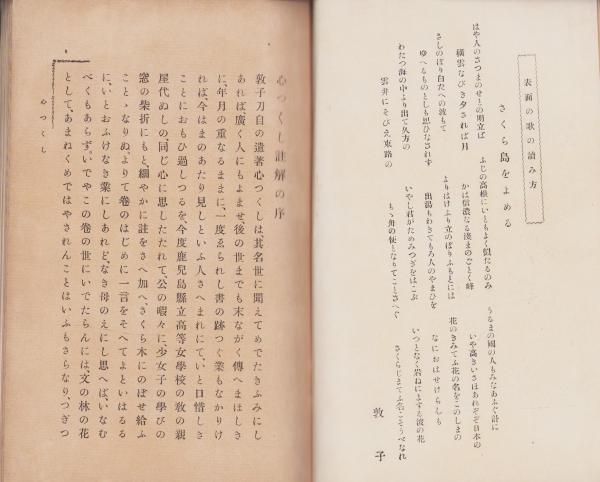 表面の歌の讀み方
さくら島をよめる
はや人のさつまのせとの明立ば
横雲なびき夕されば月
さしのぼり白たへの波もて
ゆへるものとしも思ひなされず
わたつ海の中より出て久方の
雲井にそびえ東路の
ふじの高根にいともよく似たるのみ
かは信濃なる淺まのごとく峰
よりはけぶり立のぼりふもとには
出湯もわきてもろ人のやまひを
いやし君がためみつぎをはこぶ
もゝ舟の便となりてことさへぐ
うるまの國の人もみなあふぐ計に
いや高きいさほあれぞ日本の
花のきみてふ花の名をこのしまの
なにおはせけらしも
いつとなく岩ねによする波の花
さくらじまてふ名こそうべなれ
敦子
心つくし註解の序
敦子刀自の遺著心つくしは其名世に聞えてめでたきふみにし
あれば、廣く人にもよませ、後の世までも末ながく傳へまほしき
に、年月の重なるままに、一度ゑられし書の跡つぐ業もなかりけ
れば、今はまのあたり見しといふ人さへまれにて、いと口惜しき
ことにおもひ過しつるを、今度鹿兒島縣立高等女學校の敎の親
屋代ぬしの同じ心に思したたれて、公の暇々に、少女子の學びの
窓の柴折にもと、細やかに註をさへ加へ、さくら木にのぼせ給ふ
ことゝなりぬ、よりて卷のはじめに一言をそへてよといはるる
に、いとおふけなき業にしあれど、なき母のえにし思へば、いなむ
べくもあらず。いでやこの卷の世にいでたらんには、文の林の花
として、あまねくめではやされんことはいふもさらなり、つぎつ
心つくし
一